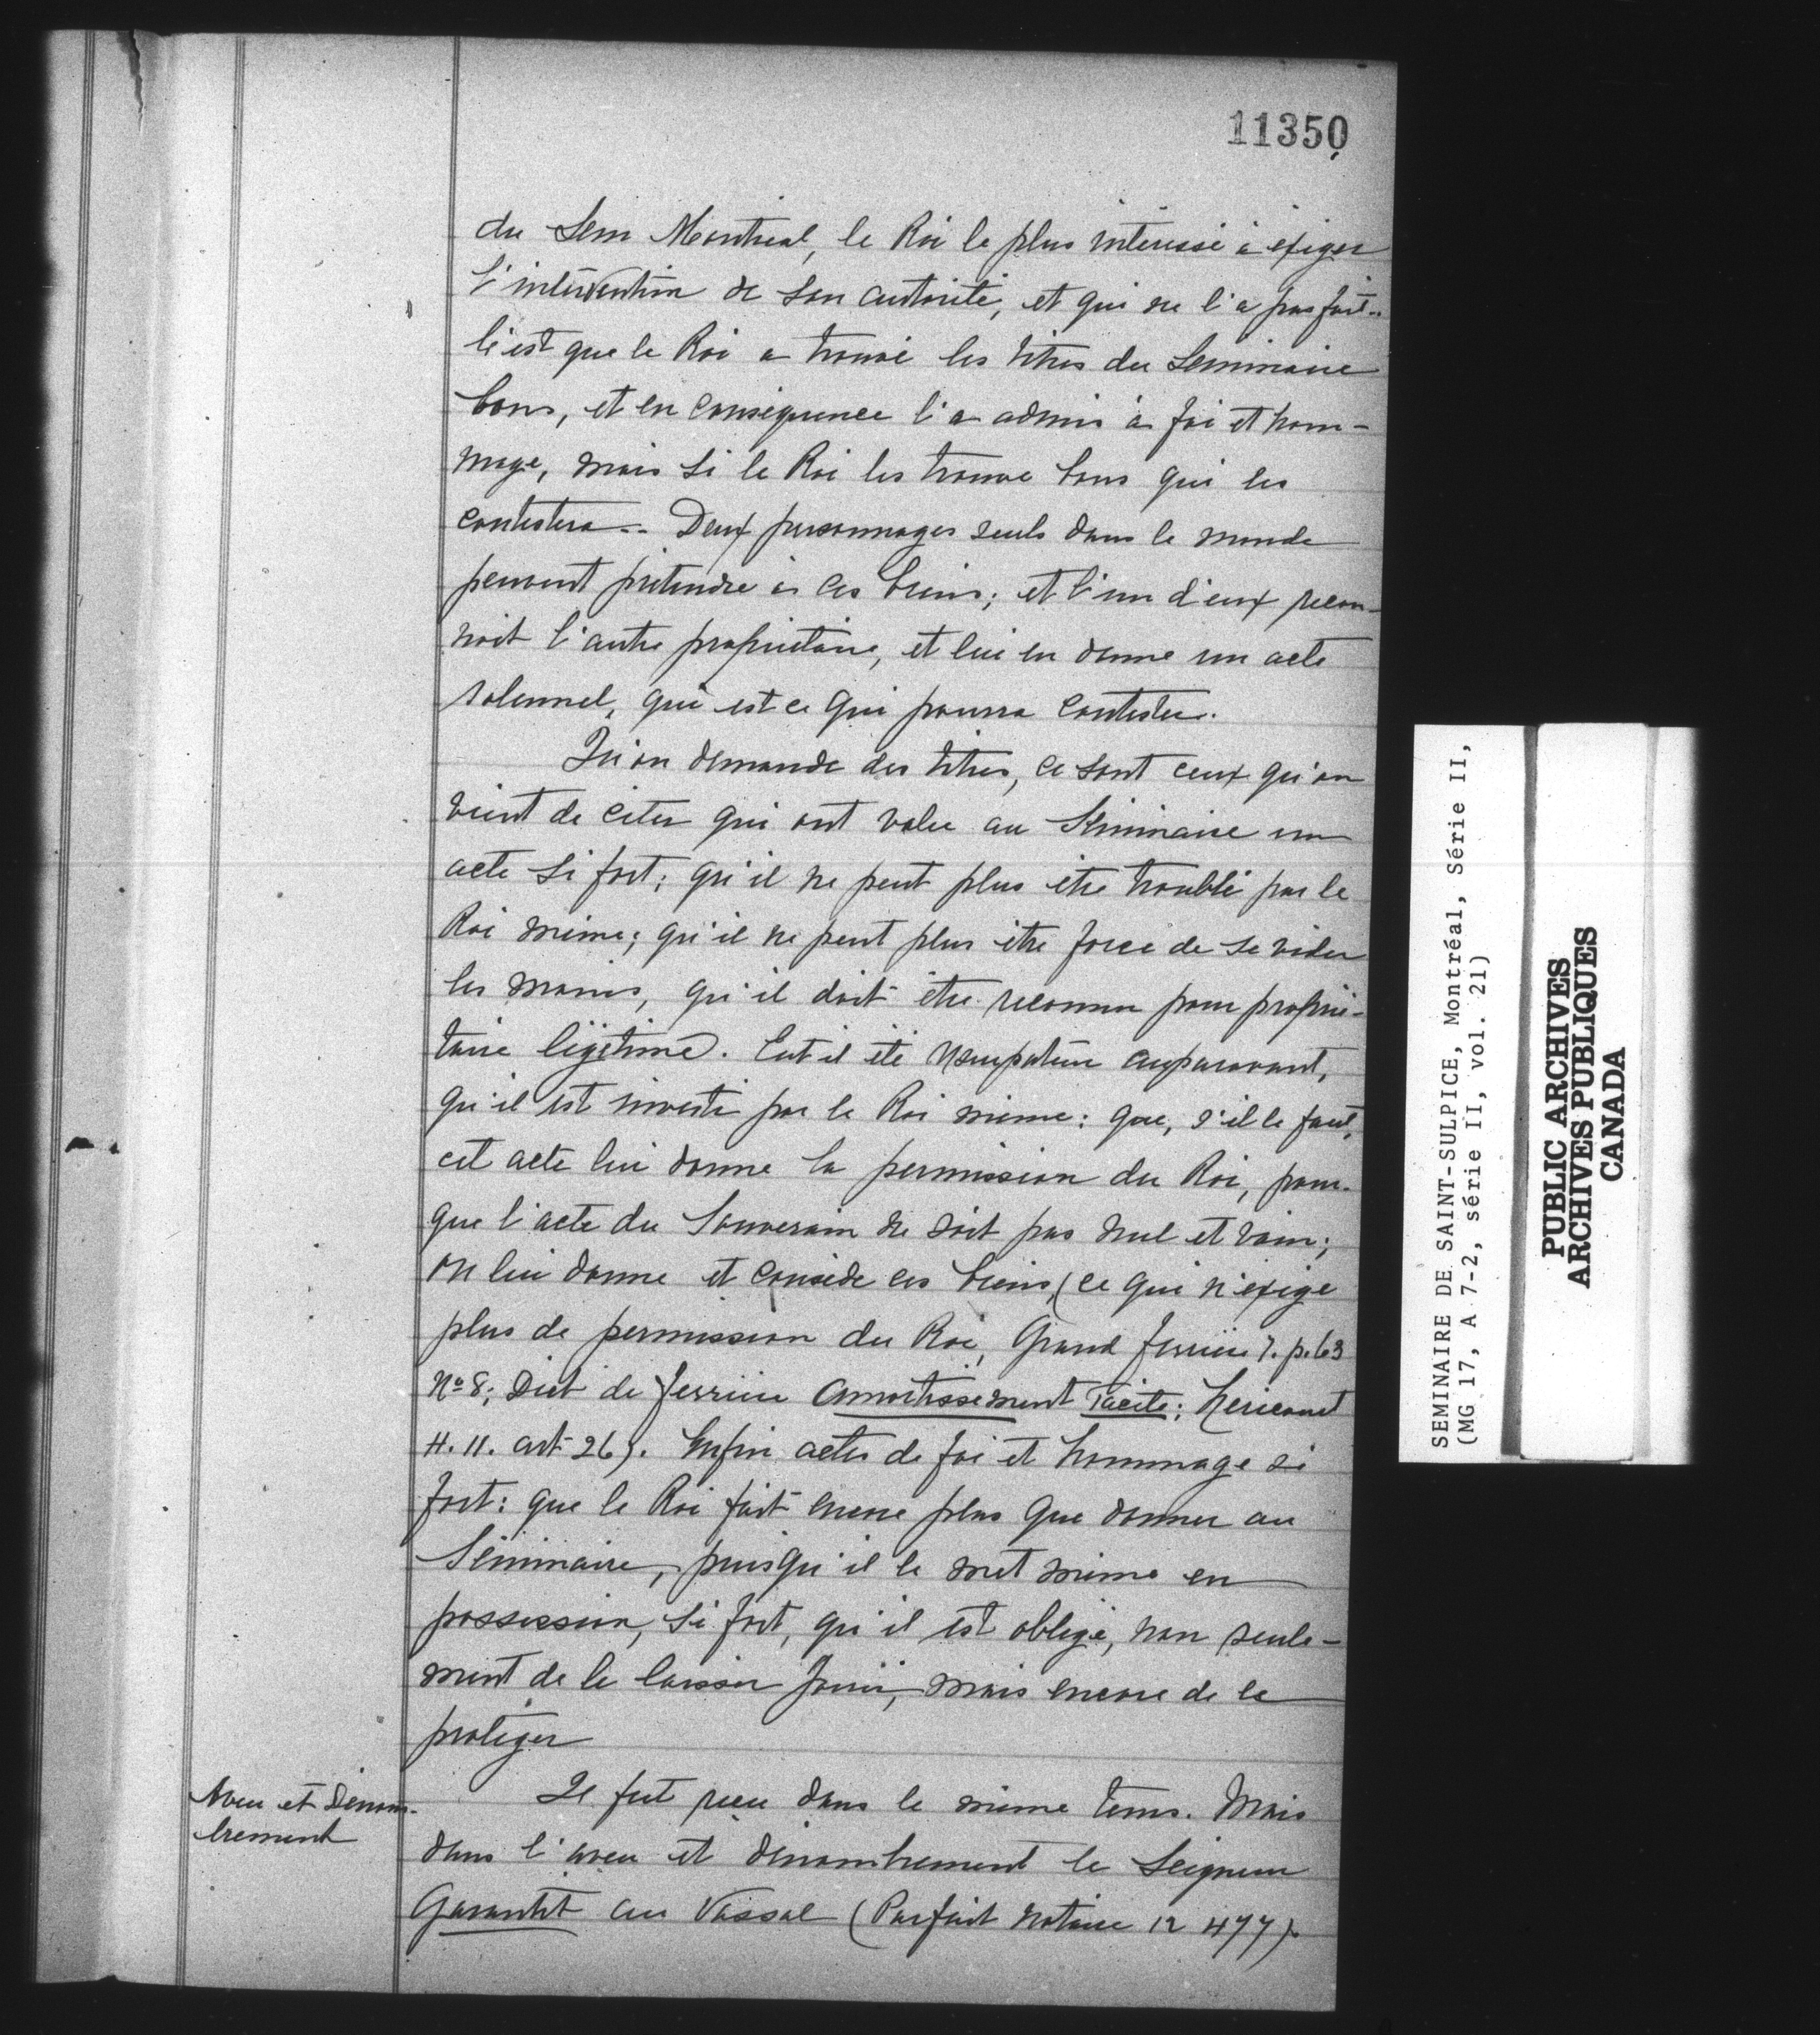 11350
du Sem Montreal, le Roi le plus intéressé à exiger
l'intervention de son autorité, et qui ne l'a pas fait..
c'est que le Roi a trouvé les titres du Seminaire
bons, et en conséquence l'a admis à foi et hom-
mage, mais si le Roi les trouve bons qui les
contestera.. Deux personnages seuls dans le monde
peuvent prétendre à ces biens; et l'un d'eux recon-
noit l'autre propriétaire, et lui en donne un acte
solennel, qui est ce qui pourra contester.
Qu'on demande des titres, ce sont ceux qu'on
vient de citer qui ont valu au Séminaire un
acte si fort; qu'il ne peut plus être troublé par le
Roi même; qu'il ne peut plus être forcé de se vider
les mains, qu'il doit être reconnu pour proprié-
taire légitime. Eut il été usurpateur auparavant,
qu'il est investi par le Roi même: que, s'il le faut,
cet acte lui donne la permission du Roi, pour-
que l'acte du Souverain ne soit pas nul et vain;
on lui donne et concède ces biens, (ce qui n'exige
plus de permission du Roi, Grand Ferrière 7. p. 63
No 8; Dict de Ferrière Amortissement Tacite; Hericourt
H. 11. art 26). Enfin actes de foi et hommage si
fort: que le Roi fait encore plus que donner au
Séminaire, puisqu'il le met même en
possession, si fort, qu'il est obligé, non seule-
ment de le laisser jouir, mais encore de le
protéger
Aveu et Dénom-
brement
Il fut reçu dans le même tems. Mais
dans l'aveu et dénombrement le Seigneur
Garantit au Vassal (Parfait Notaire 12 477).
SEMINAIRE DE SAINT-SULPICE, Montréal, Série II,
(MG 17, A 7-2, série II, vol. 21)
PUBLIC ARCHIVES
ARCHIVES PUBLIQUES
CANADA